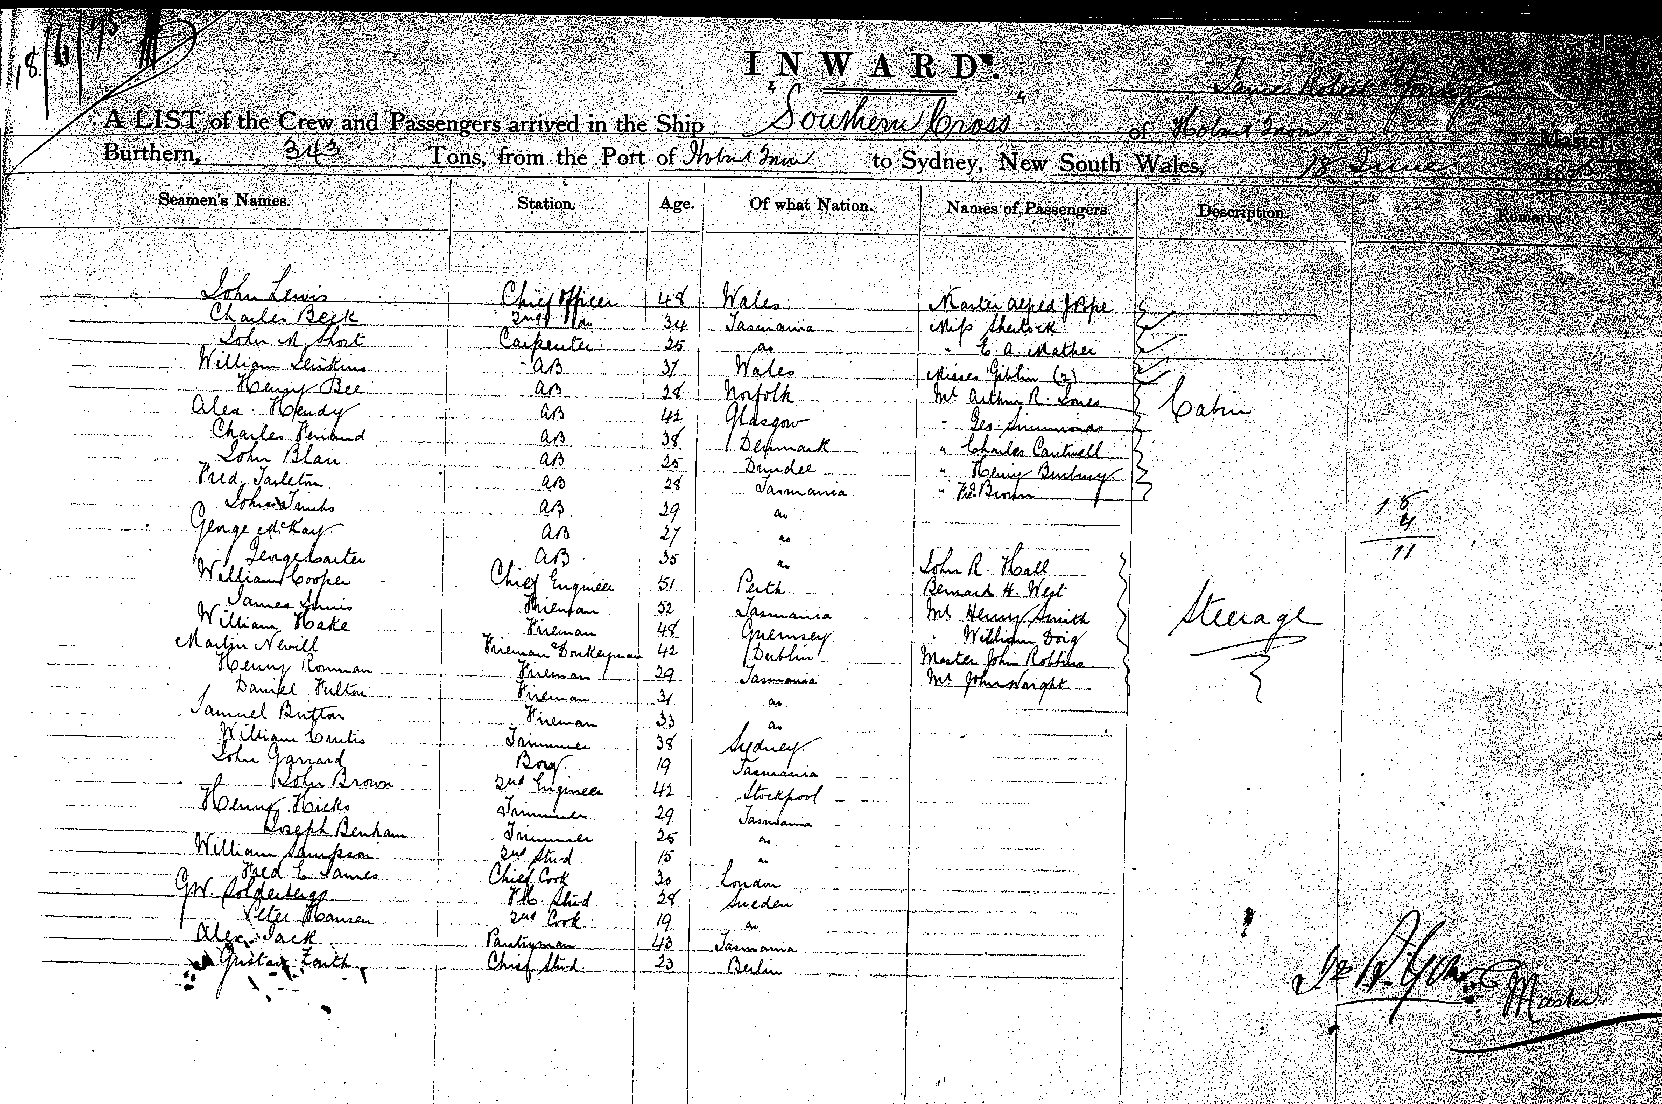 18/6/75
INWARD.
James Robert
A LIST of the Crew and Passengers arrived in the Ship "Southern Cross" of Hobart Town Master,
Burthern, 343 Tons, from the Port of Hobart Town to Sydney, New South Wales, 18 June
Seamen's Names. Station. Age. Of what Nation. Names of Passengers. Description. Remarks.
John Lewis Chief Officer 48 Wales Master Alfred J Pope
Charles Beck 2nd Do 34 Tasmania Miss Sherlock
John M Short Carpenter 25 do " E A Mather
William Jenkins AB 37 Wales Misses Giblin (2)
Henry Bee AB 28 Norfolk Mr Arthur R. Jones Cabin
Alex Hendy AB 42 Glasgow " Geo Simmonds
Charles AB 38 Denmark " Charles Cantwell
John Blair AB 25 Dundee " Henry Bunbury
Fred Tarleton AB 28 Tasmania " Brown
John AB 29 do 15
George McKay AB 27 do 11
George Carter AB 35 do John R. Hall
William Cooper Chief Engineer 51 Perth Bernard H. West
James Fireman 52 Tasmania Mr Henry Smith Steerage
William Hake Fireman 48 Guernsey " William Doig
Martin Nevill Fireman Donkeyman 42 Dublin Master John Robbins
Henry Fireman 29 Tasmania Mr John Wright
Daniel Fulton Fireman 31 do
Samuel Button Fireman 33 do
William Curtis Trimmer 38 Sydney
John Garrard Boy 19 Tasmania
John Brown 2nd Engineer 42 Stockpool
Henry Hicks Trimmer 29 Tasmania
Joseph Benham Trimmer 25 do
William Sampson 2nd Stud 15 do
Fred E James Chief Cook 30 London
G.W. Solderbergs Stud 28 Sweden
Peter Hansen 2nd Cook 19 do
Alex Jack Pantryman 43 Tasmania
Gustav Chief Stud 23 Berlin
Master